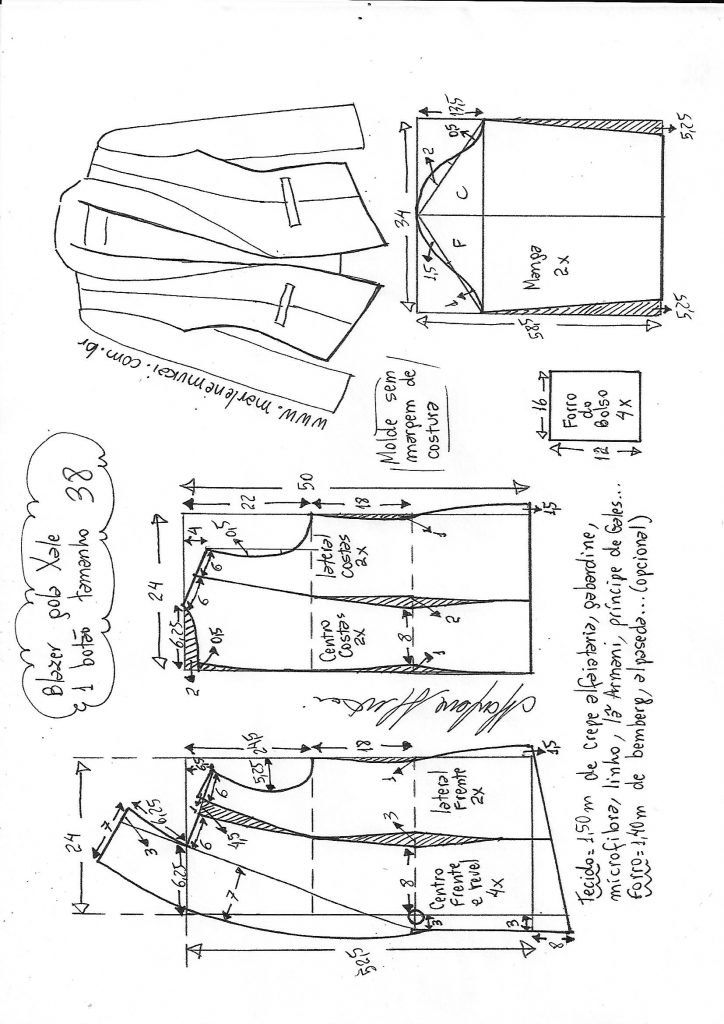 Blazer gola Xale
1 botão tamanho 38
www.marlenemukai.com.br
Molde sem
margem de
costura
24
7
3
6,25
6,25
7
6
6
4,5
5,25
24,5
18
1
3
8
3
3
8
1,5
52,5
Centro
Frente
e revel
4x
lateral
Frente
2x
24
6,25
2
0,5
6
6
4
0,5
22
18
50
8
1
2
1
1,5
Centro
Costas
2x
lateral
costas
2x
34
13,5
1,5
2
0,5
F
C
Manga
2x
58,5
5,25
5,25
16
12
Forro
do
Bolso
4x
Tecido = 1,50m de crepe alfaiataria, gabardine,
microfibra, linho, lã Armani, príncipe de Gales...
Forro = 1,40m de bemberg, alpaseda... (opcional)